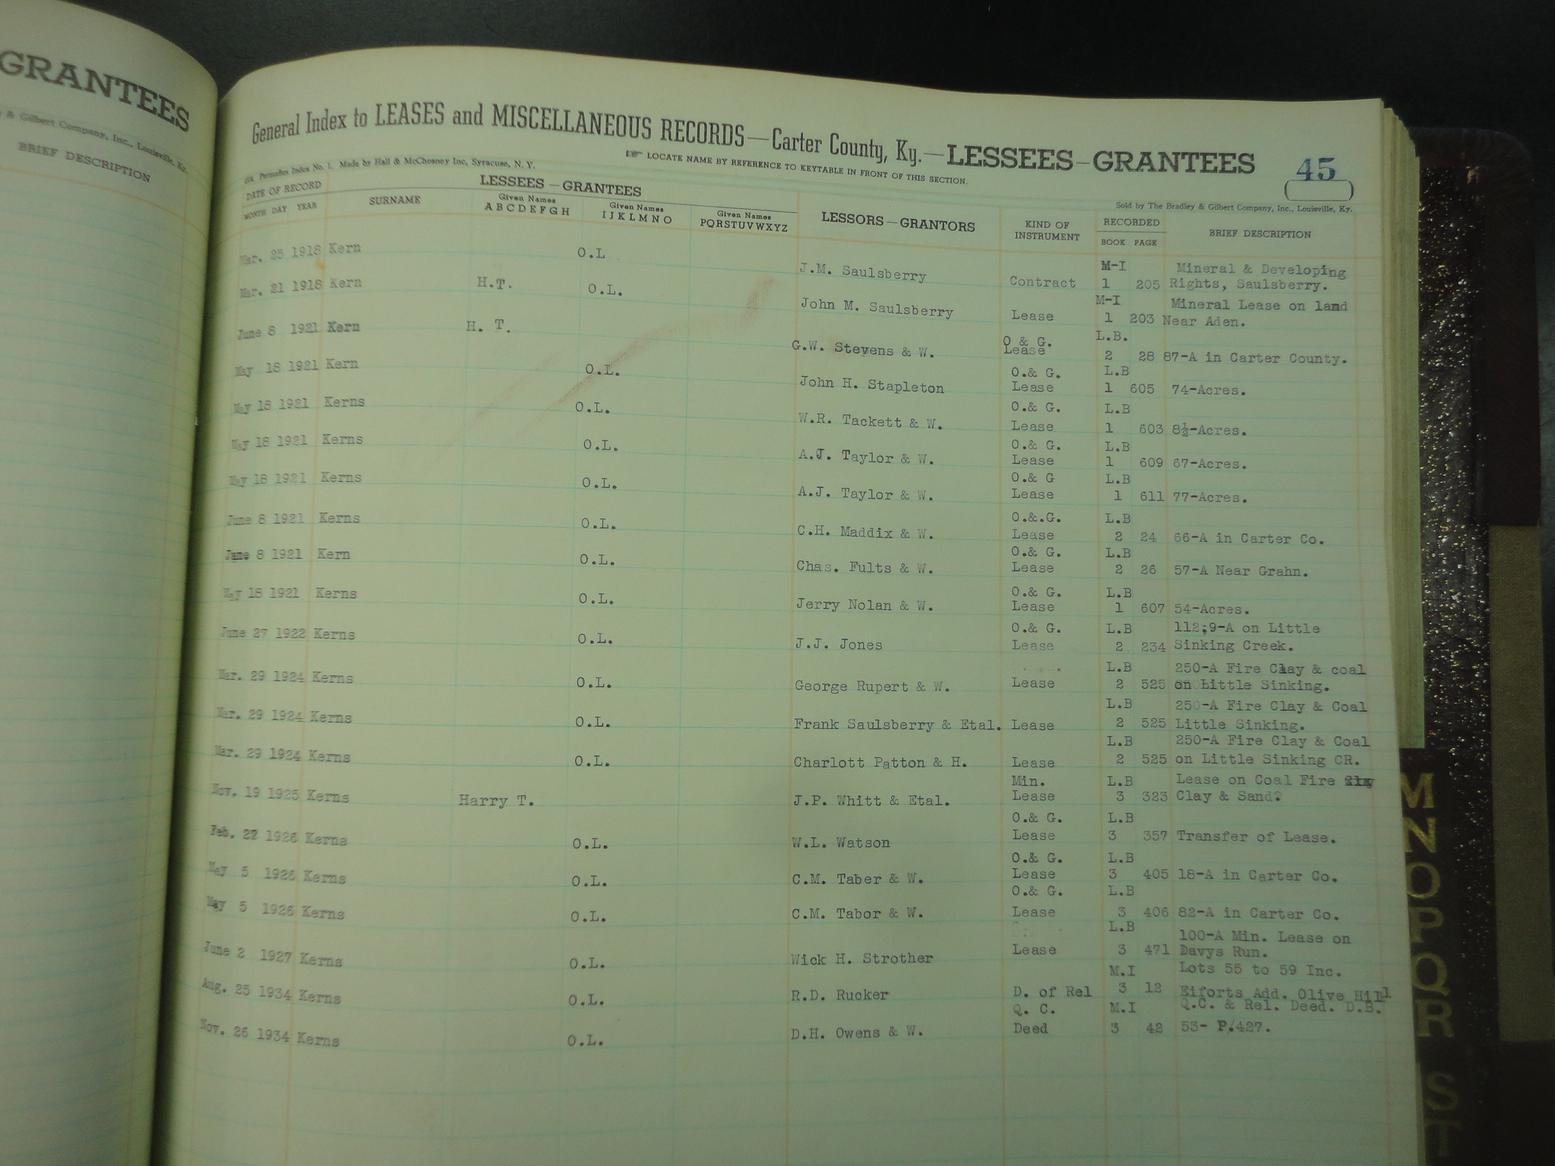 GRANTEES
& Gilbert Company, Inc., Louisville, Ky.
BRIEF DESCRIPTION
General Index to LEASES and MISCELLANEOUS RECORDS—Carter County, Ky.—LESSEES—GRANTEES
45
Permadex Index No. 1. Made by Hall & McChesney Inc, Syracuse, N. Y.
LOCATE NAME BY REFERENCE TO KEYTABLE IN FRONT OF THIS SECTION.
Sold by The Bradley & Gilbert Company, Inc., Louisville, Ky.
DATE OF RECORD LESSEES—GRANTEES LESSORS—GRANTORS KIND OF INSTRUMENT RECORDED BRIEF DESCRIPTION
MONTH DAY YEAR SURNAME Given Names ABCDEFGH Given Names IJKLMNO Given Names PQRSTUVWXYZ BOOK PAGE
Mar. 25 1918 Kern O.L J.M. Saulsberry Contract M-I 1 205 Mineral & Developing Rights, Saulsberry.
Mar. 21 1918 Kern H.T. O.L. John M. Saulsberry Lease M-I 1 203 Mineral Lease on land Near Aden.
June 8 1921 Kern H. T. G.W. Stevens & W. O & G. Lease L.B. 2 28 87-A in Carter County.
May 18 1921 Kern O.L. John H. Stapleton O.& G. Lease L.B 1 605 74-Acres.
May 18 1921 Kerns O.L. W.R. Tackett & W. O.& G. Lease L.B 1 603 8½-Acres.
May 18 1921 Kerns O.L. A.J. Taylor & W. O.& G. Lease L.B 1 609 67-Acres.
May 18 1921 Kerns O.L. A.J. Taylor & W. O.& G Lease L.B 1 611 77-Acres.
June 8 1921 Kerns O.L. C.H. Maddix & W. O.&.G. Lease L.B 2 24 66-A in Carter Co.
June 8 1921 Kern O.L. Chas. Fults & W. O.& G. Lease L.B 2 26 57-A Near Grahn.
May 18 1921 Kerns O.L. Jerry Nolan & W. O.& G. Lease L.B 1 607 54-Acres.
June 27 1922 Kerns O.L. J.J. Jones O.& G. Lease L.B 2 234 112;9-A on Little Sinking Creek.
Mar. 29 1924 Kerns O.L. George Rupert & W. Lease L.B 2 525 250-A Fire Clay & coal on Little Sinking.
Mar. 29 1924 Kerns O.L. Frank Saulsberry & Etal. Lease L.B 2 525 250-A Fire Clay & Coal Little Sinking.
Mar. 29 1924 Kerns O.L. Charlott Patton & H. Lease L.B 2 525 250-A Fire Clay & Coal on Little Sinking CR.
Nov. 19 1925 Kerns Harry T. J.P. Whitt & Etal. Min. Lease L.B 3 323 Lease on Coal Fire Clay & Sand.
Feb. 22 1926 Kerns O.L. W.L. Watson O.& G. Lease L.B 3 357 Transfer of Lease.
May 5 1926 Kerns O.L. C.M. Taber & W. O.& G. Lease L.B 3 405 18-A in Carter Co.
May 5 1926 Kerns O.L. C.M. Tabor & W. O.& G. Lease L.B 3 406 82-A in Carter Co.
June 2 1927 Kerns O.L. Wick H. Strother Lease L.B 3 471 100-A Min. Lease on Davys Run.
Aug. 25 1934 Kerns O.L. R.D. Rucker D. of Rel M.I 3 12 Lots 55 to 59 Inc. Eiforts Add. Olive Hill
Nov. 26 1934 Kerns O.L. D.H. Owens & W. Q. C. Deed M.I 3 42 Q.C. & Rel. Deed. D.B. 53- P.427.
M
N
O
P
Q
R
S
T